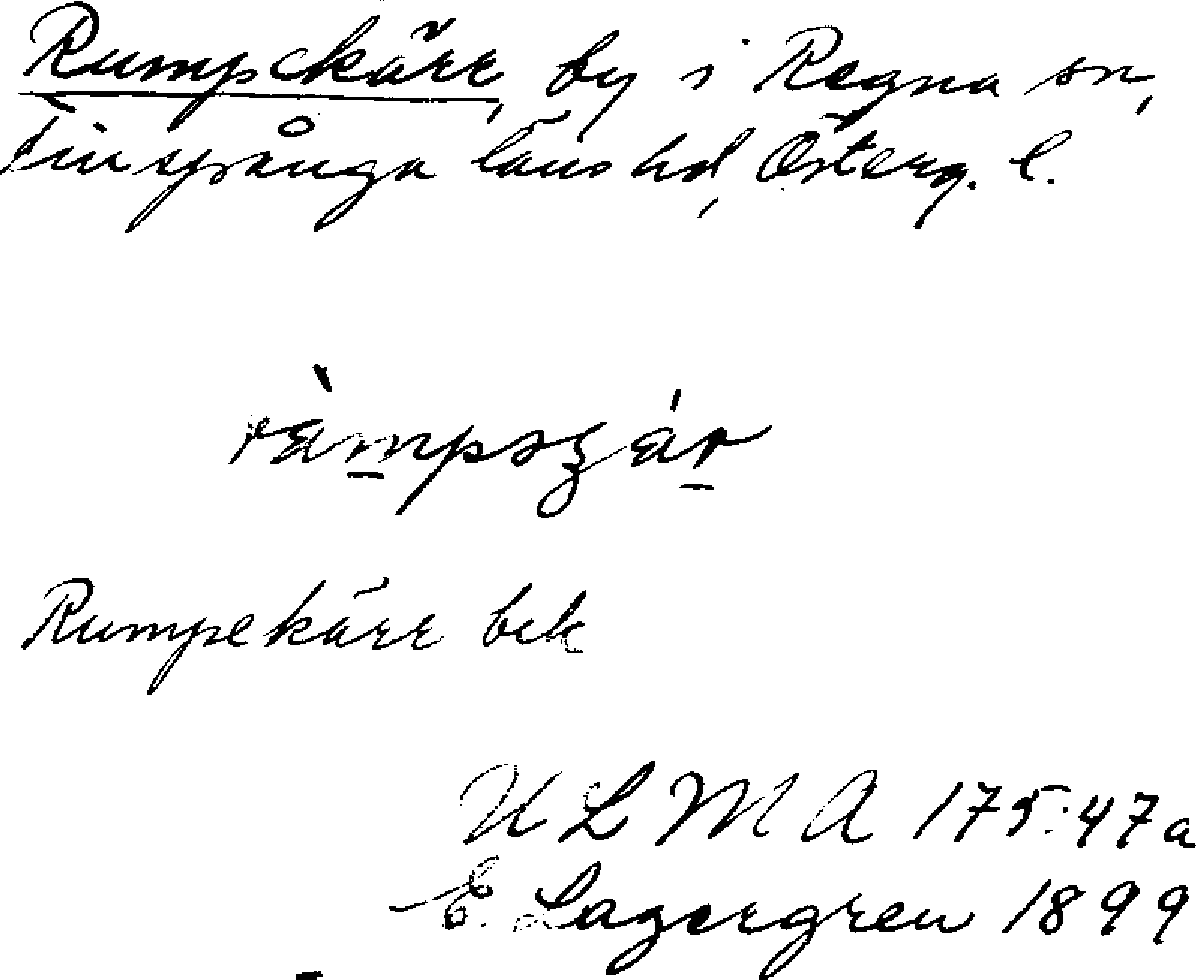 Rumpekärr, by i Regna sn,
Finspånga läns hd, Österg. l.
Rumpekärr bek
ULMA 175:47a
E. Lagergren 1899